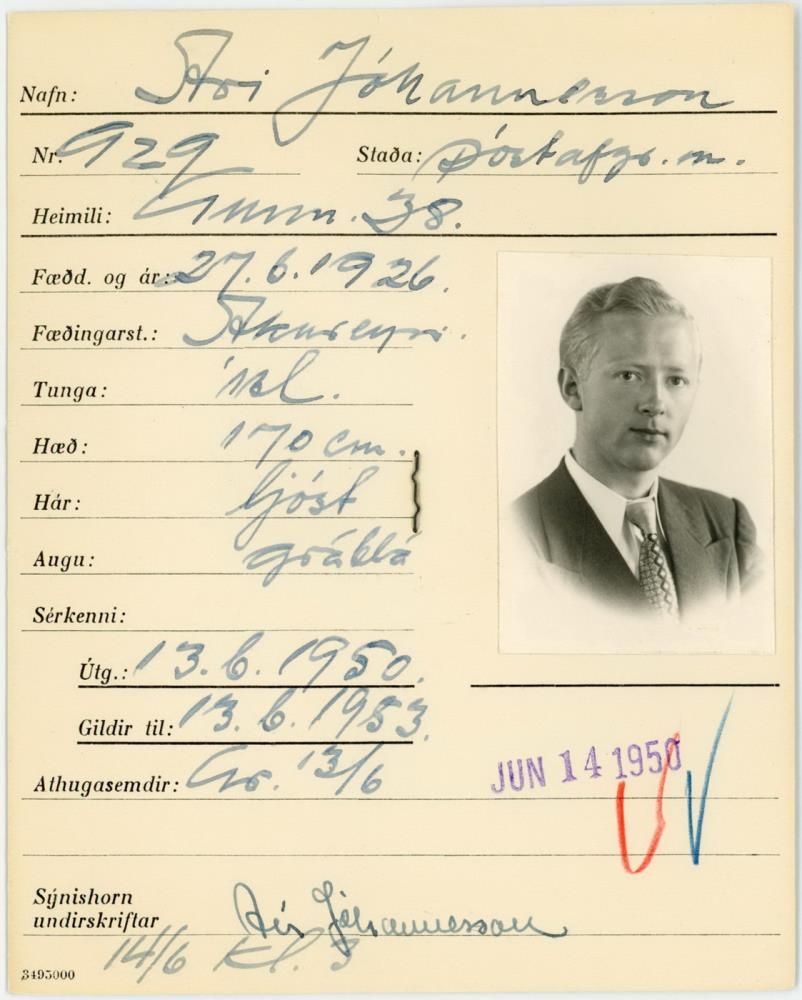 Nafn: Ari Jóhannesson
Nr. 929 Staða: póstafgr.m.
Heimili: Gunn. 38.
Fædd. og ár: 27.6.1926.
Fæðingarst.: Akureyri.
Tunga: ísl.
Hæð: 170 cm.
Hár: ljóst
Augu: gráblá
Sérkenni:
Útg.: 13.6.1950.
Gildir til: 13.6.1953.
Athugasemdir: Gr. 13/6
JUN 14 1950
Sýnishorn
undirskriftar Ari Jóhannesson
14/6 kl. 3
3495000